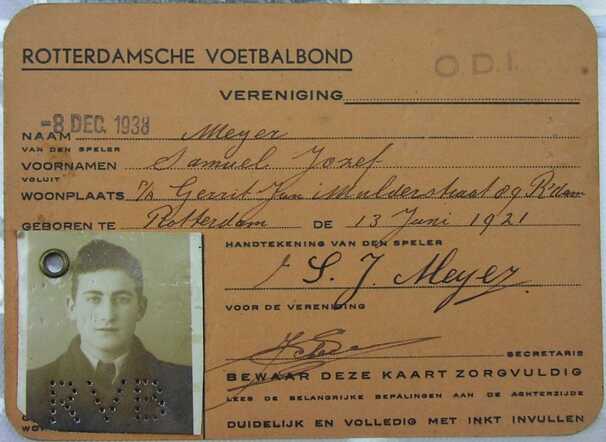 ROTTERDAMSCHE VOETBALBOND
O.D.I.
VERENIGING
-8 DEC. 1938
NAAM Meyer
VAN DEN SPELER
VOORNAMEN Samuel Jozef
VOLUIT
WOONPLAATS Gerrit Jan Mulderstraat 89 R'dam
GEBOREN TE Rotterdam DE 13 Juni 1921
HANDTEKENING VAN DEN SPELER
S. J. Meyer
VOOR DE VERENIGING
SECRETARIS
BEWAAR DEZE KAART ZORGVULDIG
LEES DE BELANGRIJKE BEPALINGEN AAN DE ACHTERZIJDE
DUIDELIJK EN VOLLEDIG MET INKT INVULLEN
RVB